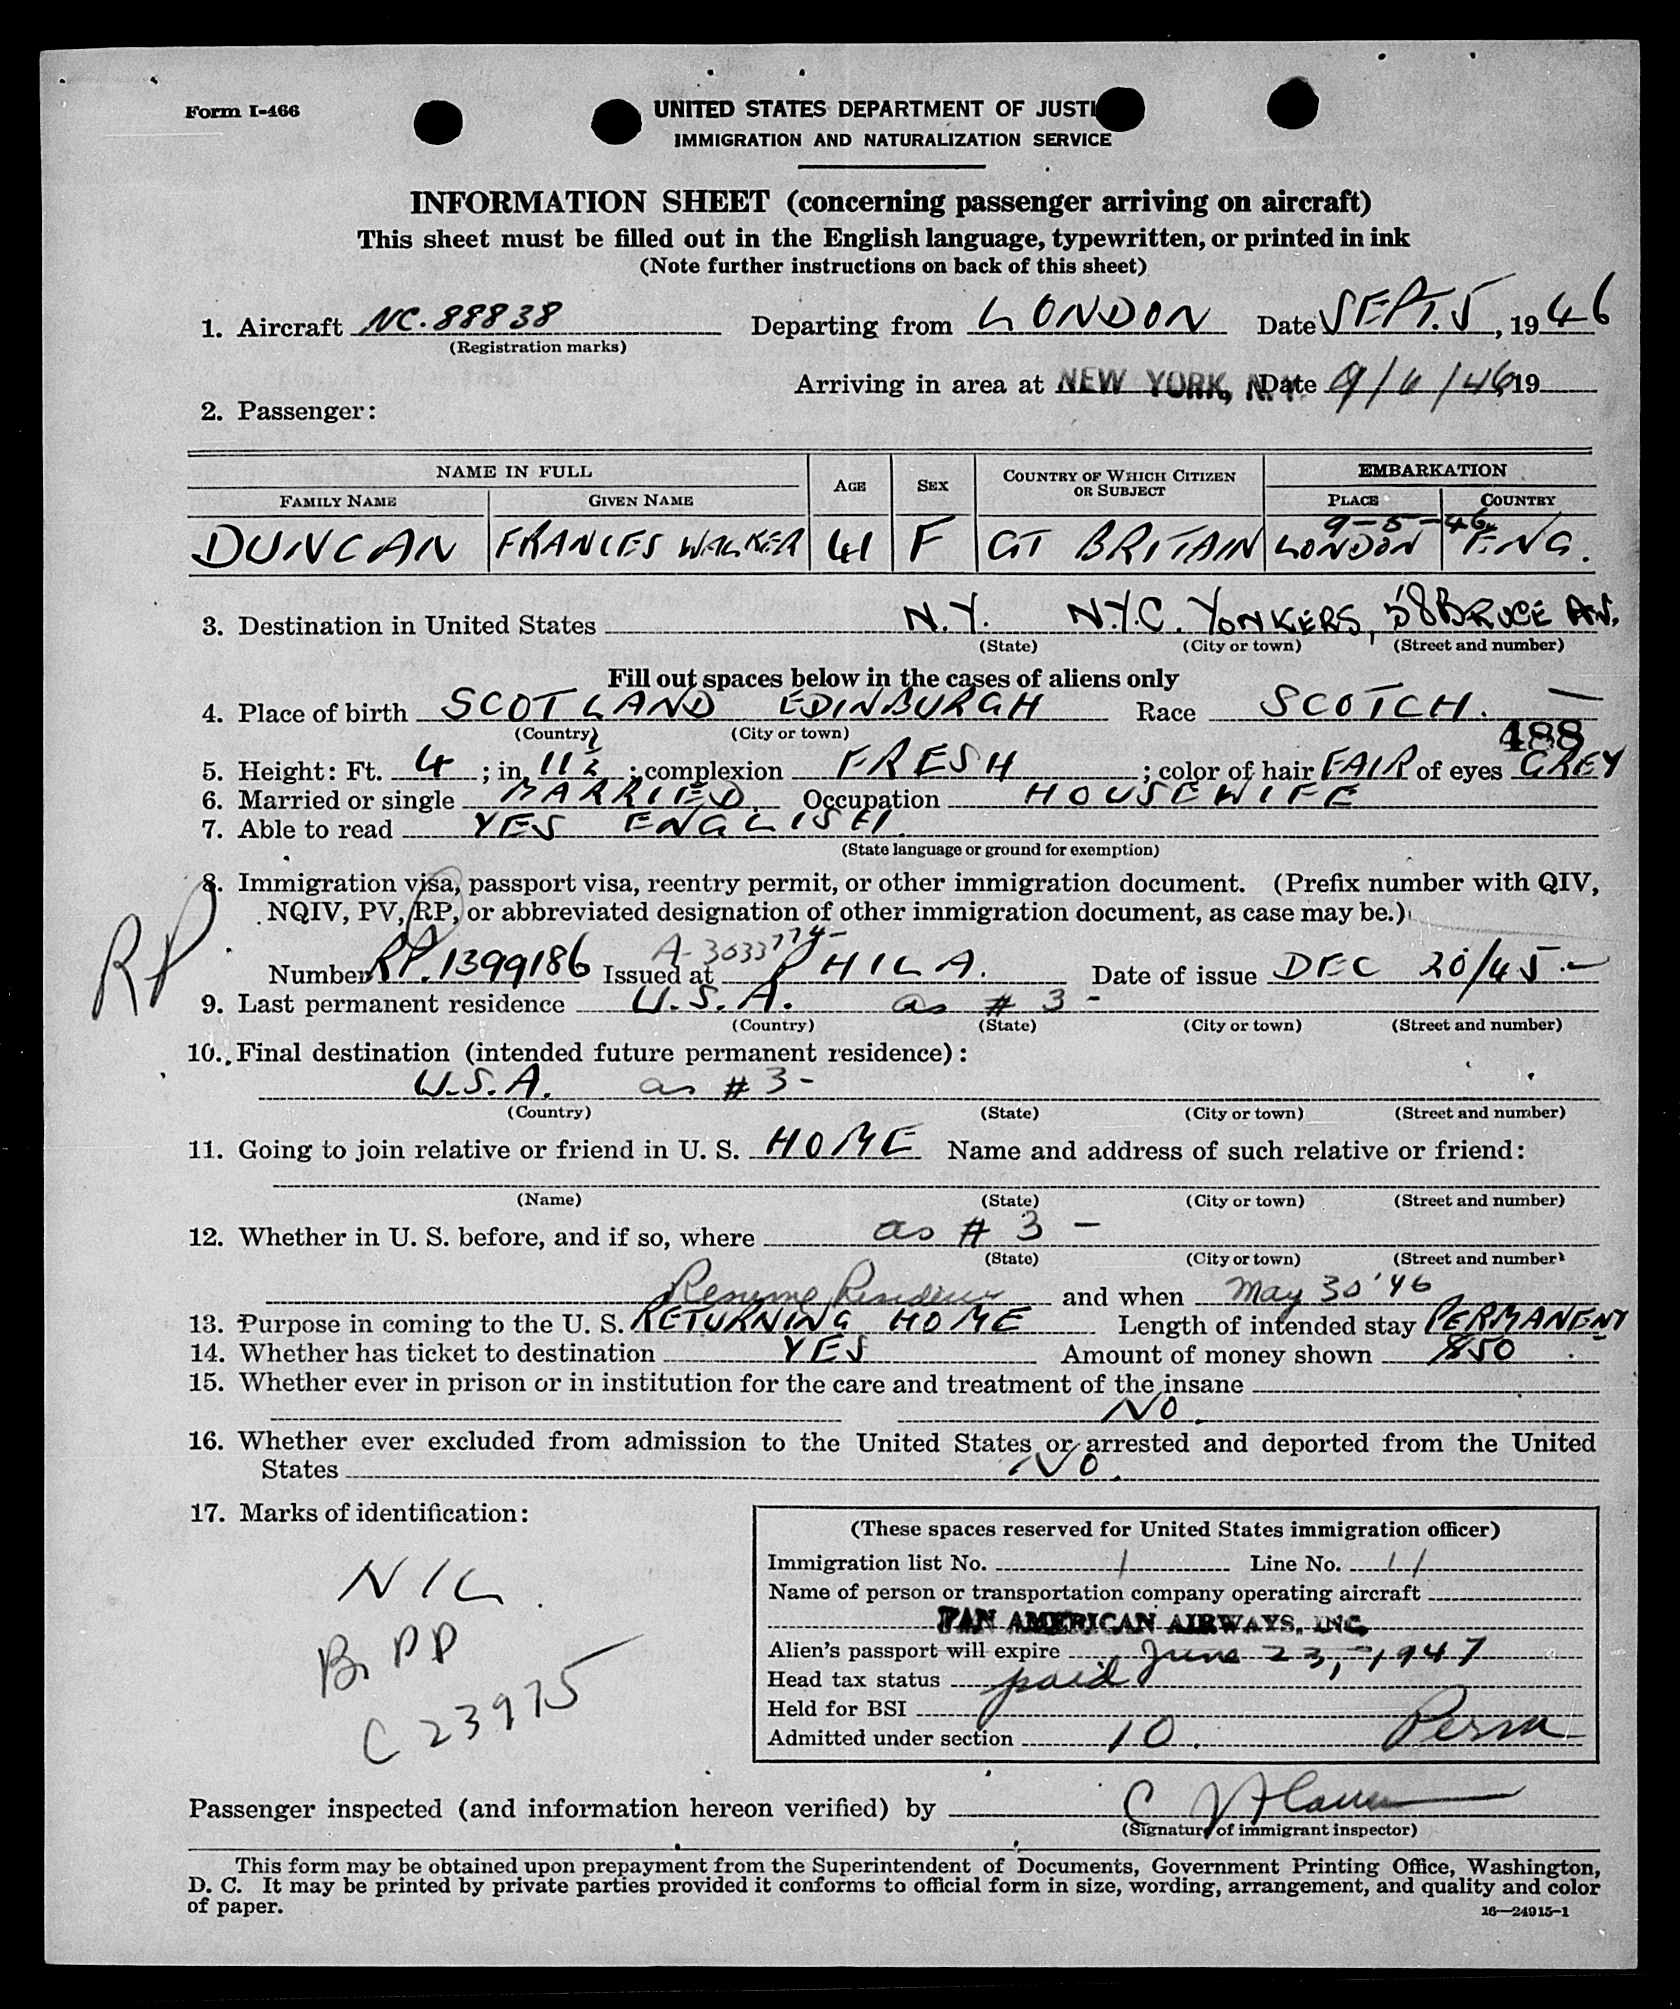 Form I-466
UNITED STATES DEPARTMENT OF JUSTI
IMMIGRATION AND NATURALIZATION SERVICE
INFORMATION SHEET (concerning passenger arriving on aircraft)
This sheet must be filled out in the English language, typewritten, or printed in ink
(Note further instructions on back of this sheet)
1. Aircraft NC.88838 Departing from LONDON Date SEPT. 5, 1946
(Registration marks)
Arriving in area at NEW YORK, N.Y. Date 9/6/46, 19
2. Passenger:
NAME IN FULL AGE SEX COUNTRY OF WHICH CITIZEN OR SUBJECT EMBARKATION
FAMILY NAME GIVEN NAME PLACE COUNTRY
9-5-46
DUNCAN FRANCES WALKER 41 F GT BRITAIN LONDON ENG.
3. Destination in United States N.Y. N.Y.C. YONKERS, 58 BRUCE AV.
(State) (City or town) (Street and number)
Fill out spaces below in the cases of aliens only
4. Place of birth SCOTLAND EDINBURGH Race SCOTCH. —
(Country) (City or town) 488
5. Height: Ft. 4; in. 11½; complexion FRESH; color of hair FAIR of eyes GREY
6. Married or single MARRIED. Occupation HOUSEWIFE
7. Able to read YES ENGLISH.
(State language or ground for exemption)
8. Immigration visa, passport visa, reentry permit, or other immigration document. (Prefix number with QIV,
NQIV, PV, RP, or abbreviated designation of other immigration document, as case may be.)
RP
A-3033774-
Number RP.1399186 Issued at PHILA. Date of issue DEC 20/45.-
9. Last permanent residence U.S.A. as #3 -
(Country) (State) (City or town) (Street and number)
10. Final destination (intended future permanent residence):
U.S.A. as #3-
(Country) (State) (City or town) (Street and number)
11. Going to join relative or friend in U. S. HOME Name and address of such relative or friend:
(Name) (State) (City or town) (Street and number)
12. Whether in U. S. before, and if so, where as #3 -
(State) (City or town) (Street and number)
Resume Residence and when May 30 '46
13. Purpose in coming to the U. S. RETURNING HOME Length of intended stay PERMANENT
14. Whether has ticket to destination YES Amount of money shown $50
15. Whether ever in prison or in institution for the care and treatment of the insane
NO.
16. Whether ever excluded from admission to the United States or arrested and deported from the United
States NO.
17. Marks of identification:
NIL.
Br PP
C 23975
(These spaces reserved for United States immigration officer)
Immigration list No. 1 Line No. 11
Name of person or transportation company operating aircraft
PAN AMERICAN AIRWAYS, INC.
Alien's passport will expire June 23, 1947
Head tax status paid
Held for BSI
Admitted under section 10. Perm
Passenger inspected (and information hereon verified) by C
(Signature of immigrant inspector)
This form may be obtained upon prepayment from the Superintendent of Documents, Government Printing Office, Washington,
D. C. It may be printed by private parties provided it conforms to official form in size, wording, arrangement, and quality and color
of paper.
16—24915-1